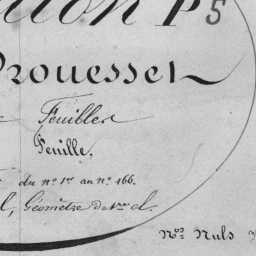 tion P5
Prouessel
Feuilles
Feuille.
du n° 1er au n° 166.
l, Géomètre de 1ère cl.
Nos Nuls